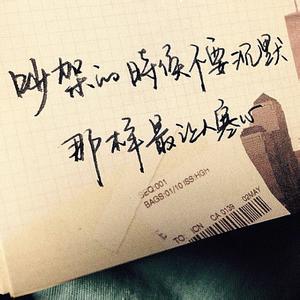 吵架的時候不要沉默
那样最让人寒心
SEQ:001
BAGS:01/10 ISS:HGH
CA 0139 02MAY